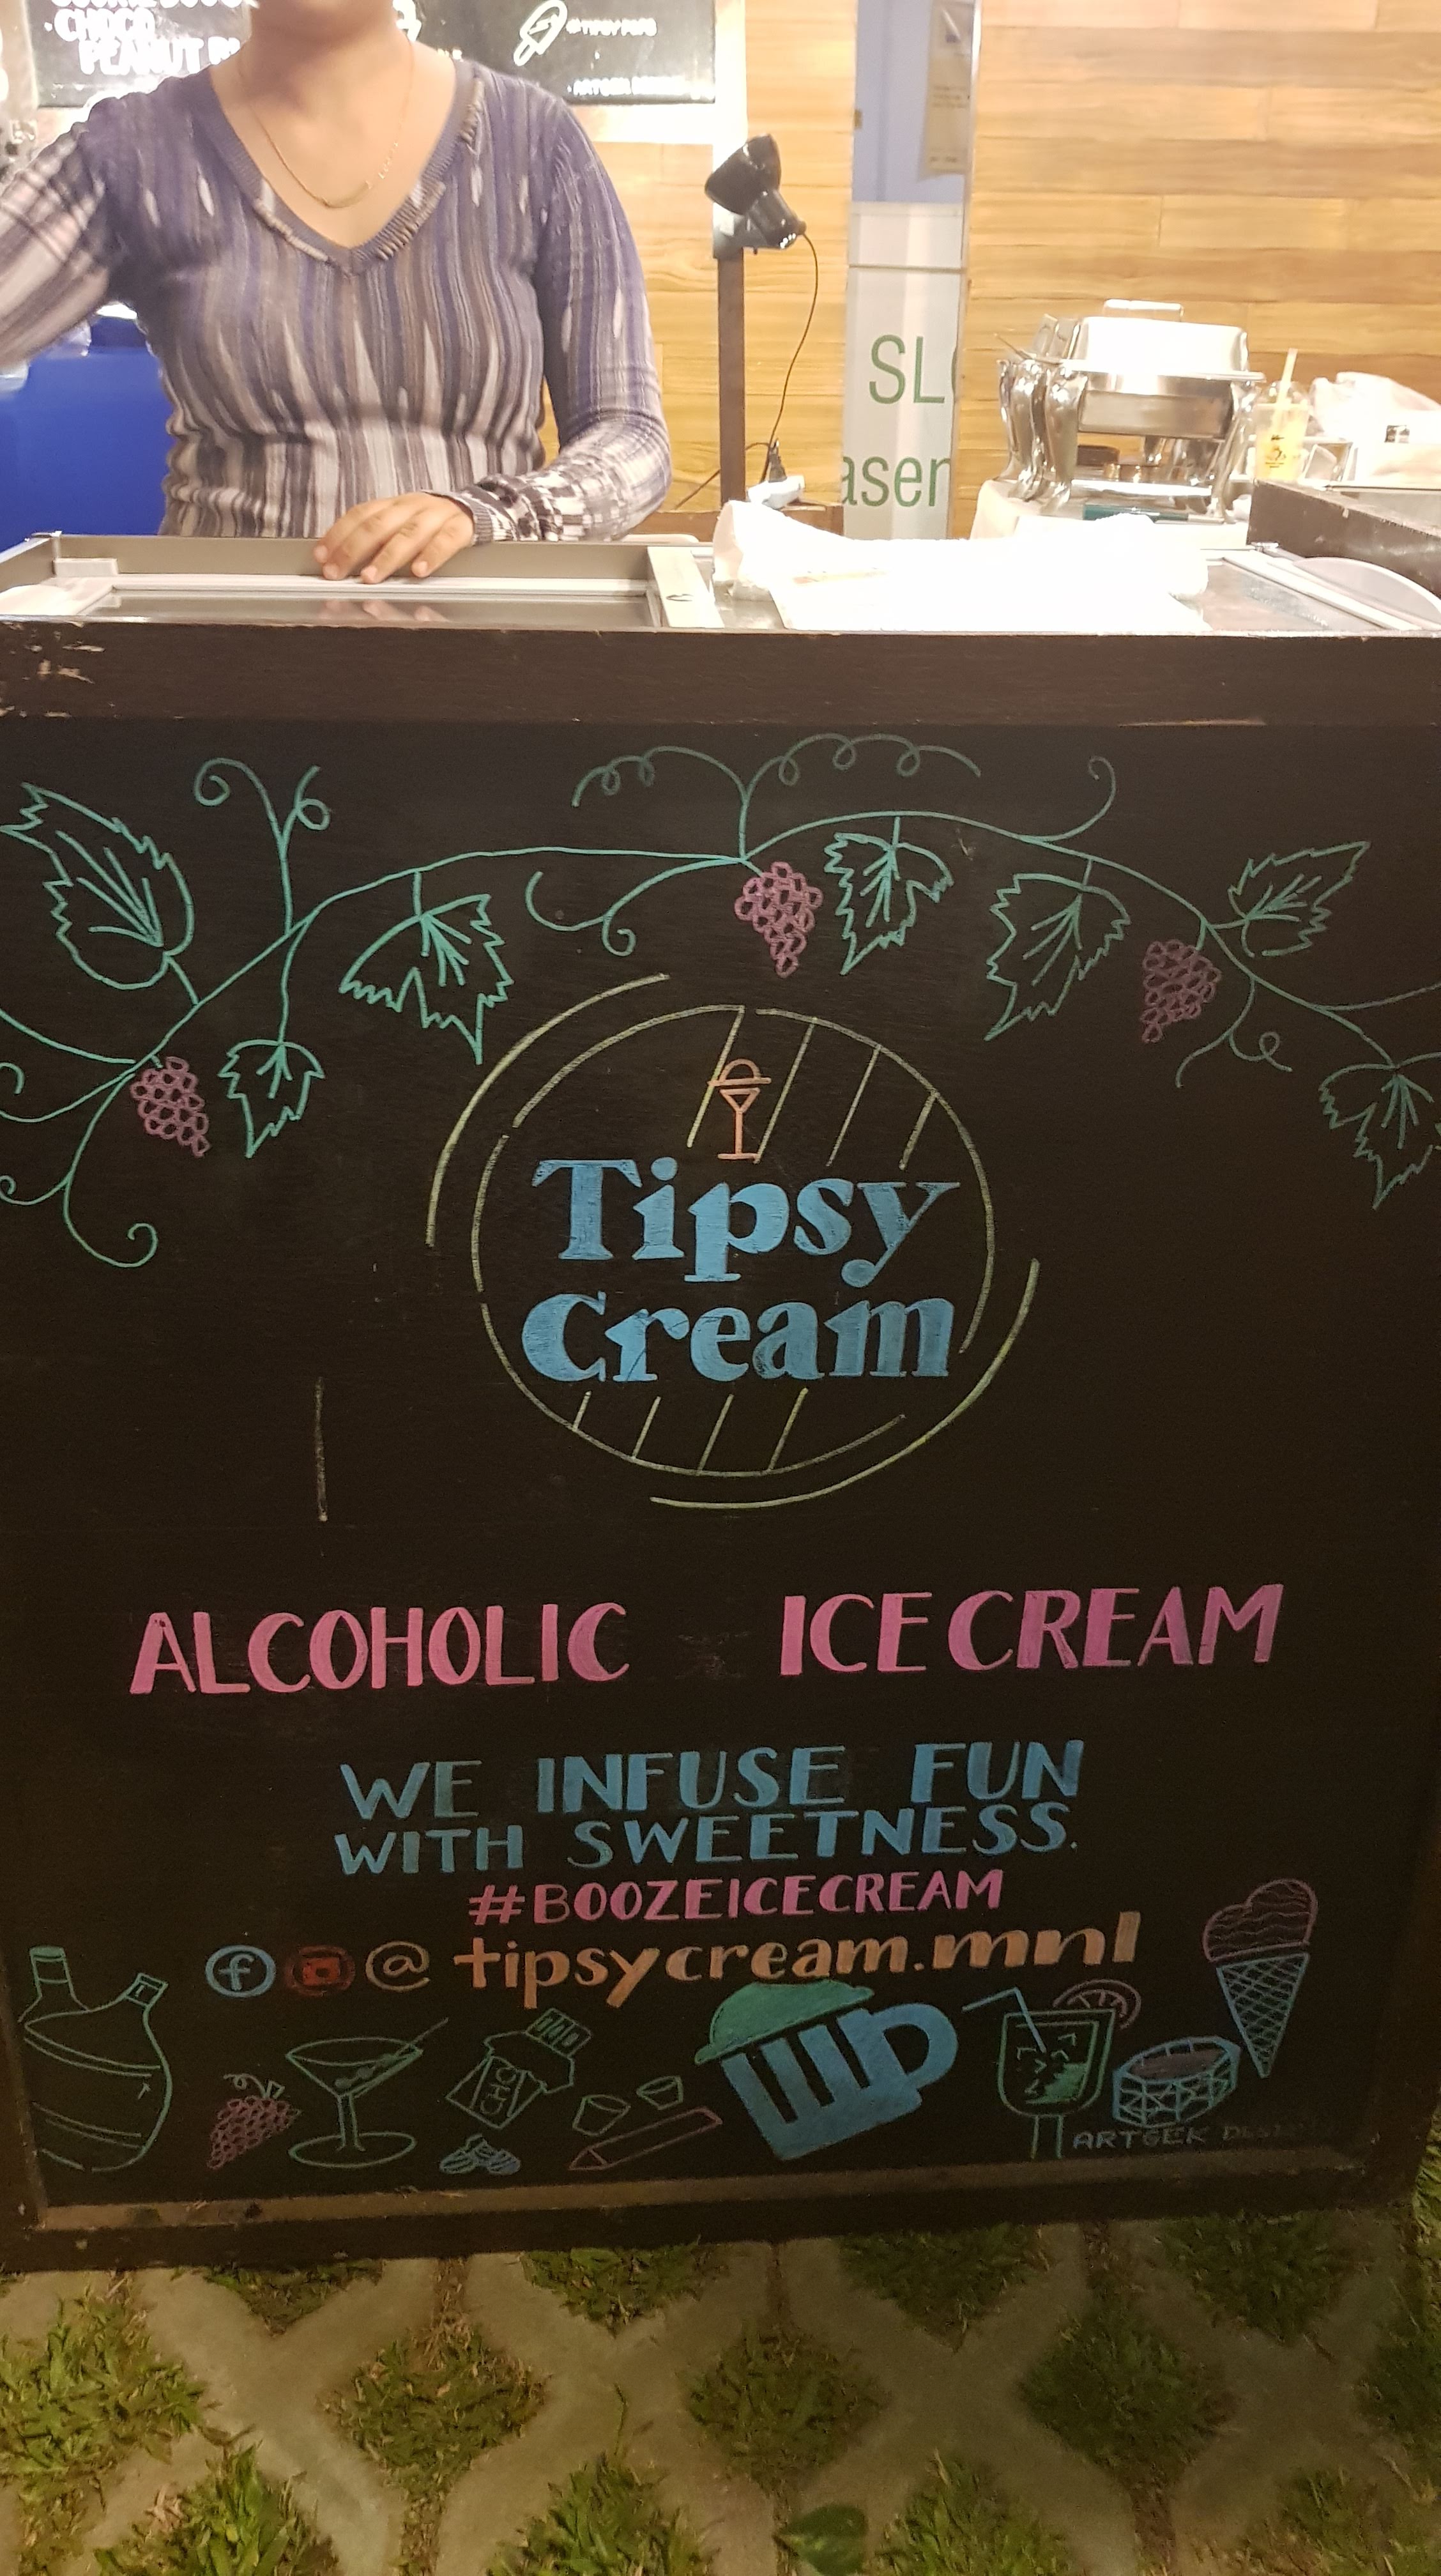 CHOCO
PEANUT
#TIPSY POPS
SL
aser
Tipsy
Cream
ALCOHOLIC ICE CREAM
WE INFUSE FUN
WITH SWEETNESS.
#BOOZEICECREAM
f @ tipsycream.mnl
CHO
ARTGEK